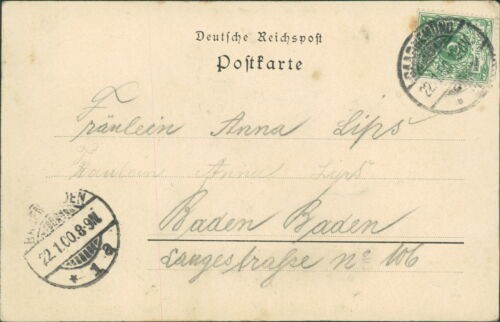 Deutsche Reichspost
Postkarte
Fräulein Anna Lips
Fräulein Anna Lips
Baden Baden
Langestraße no 106
BADEN-BADEN
22.1.00.8-9N
* 1 a